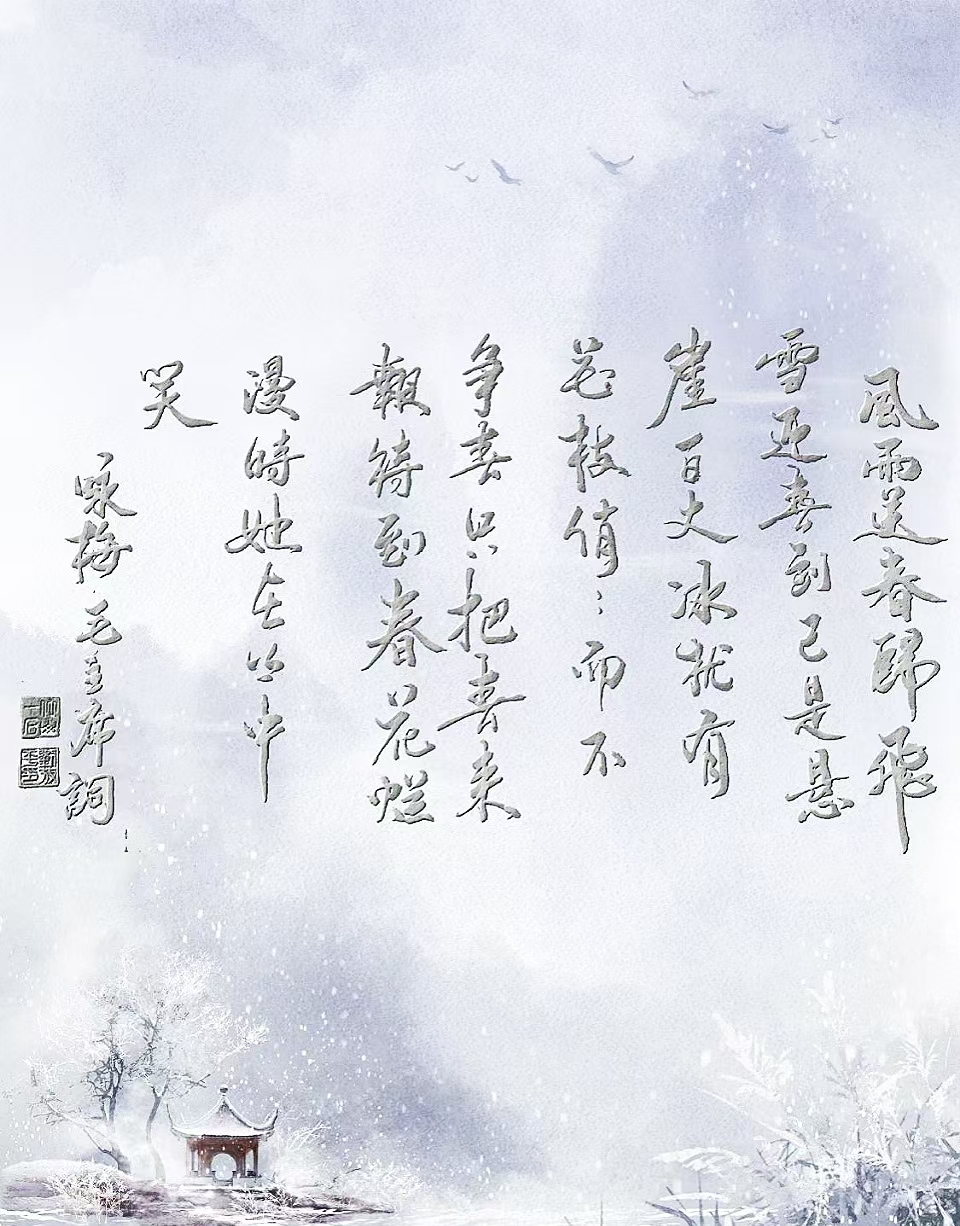 風雨送春歸飛
雪迎春到已是悬
崖百丈冰犹有
花枝俏〻而不
争春只把春来
報待到春花烂
漫時她在丛中
笑
咏梅毛主席詞